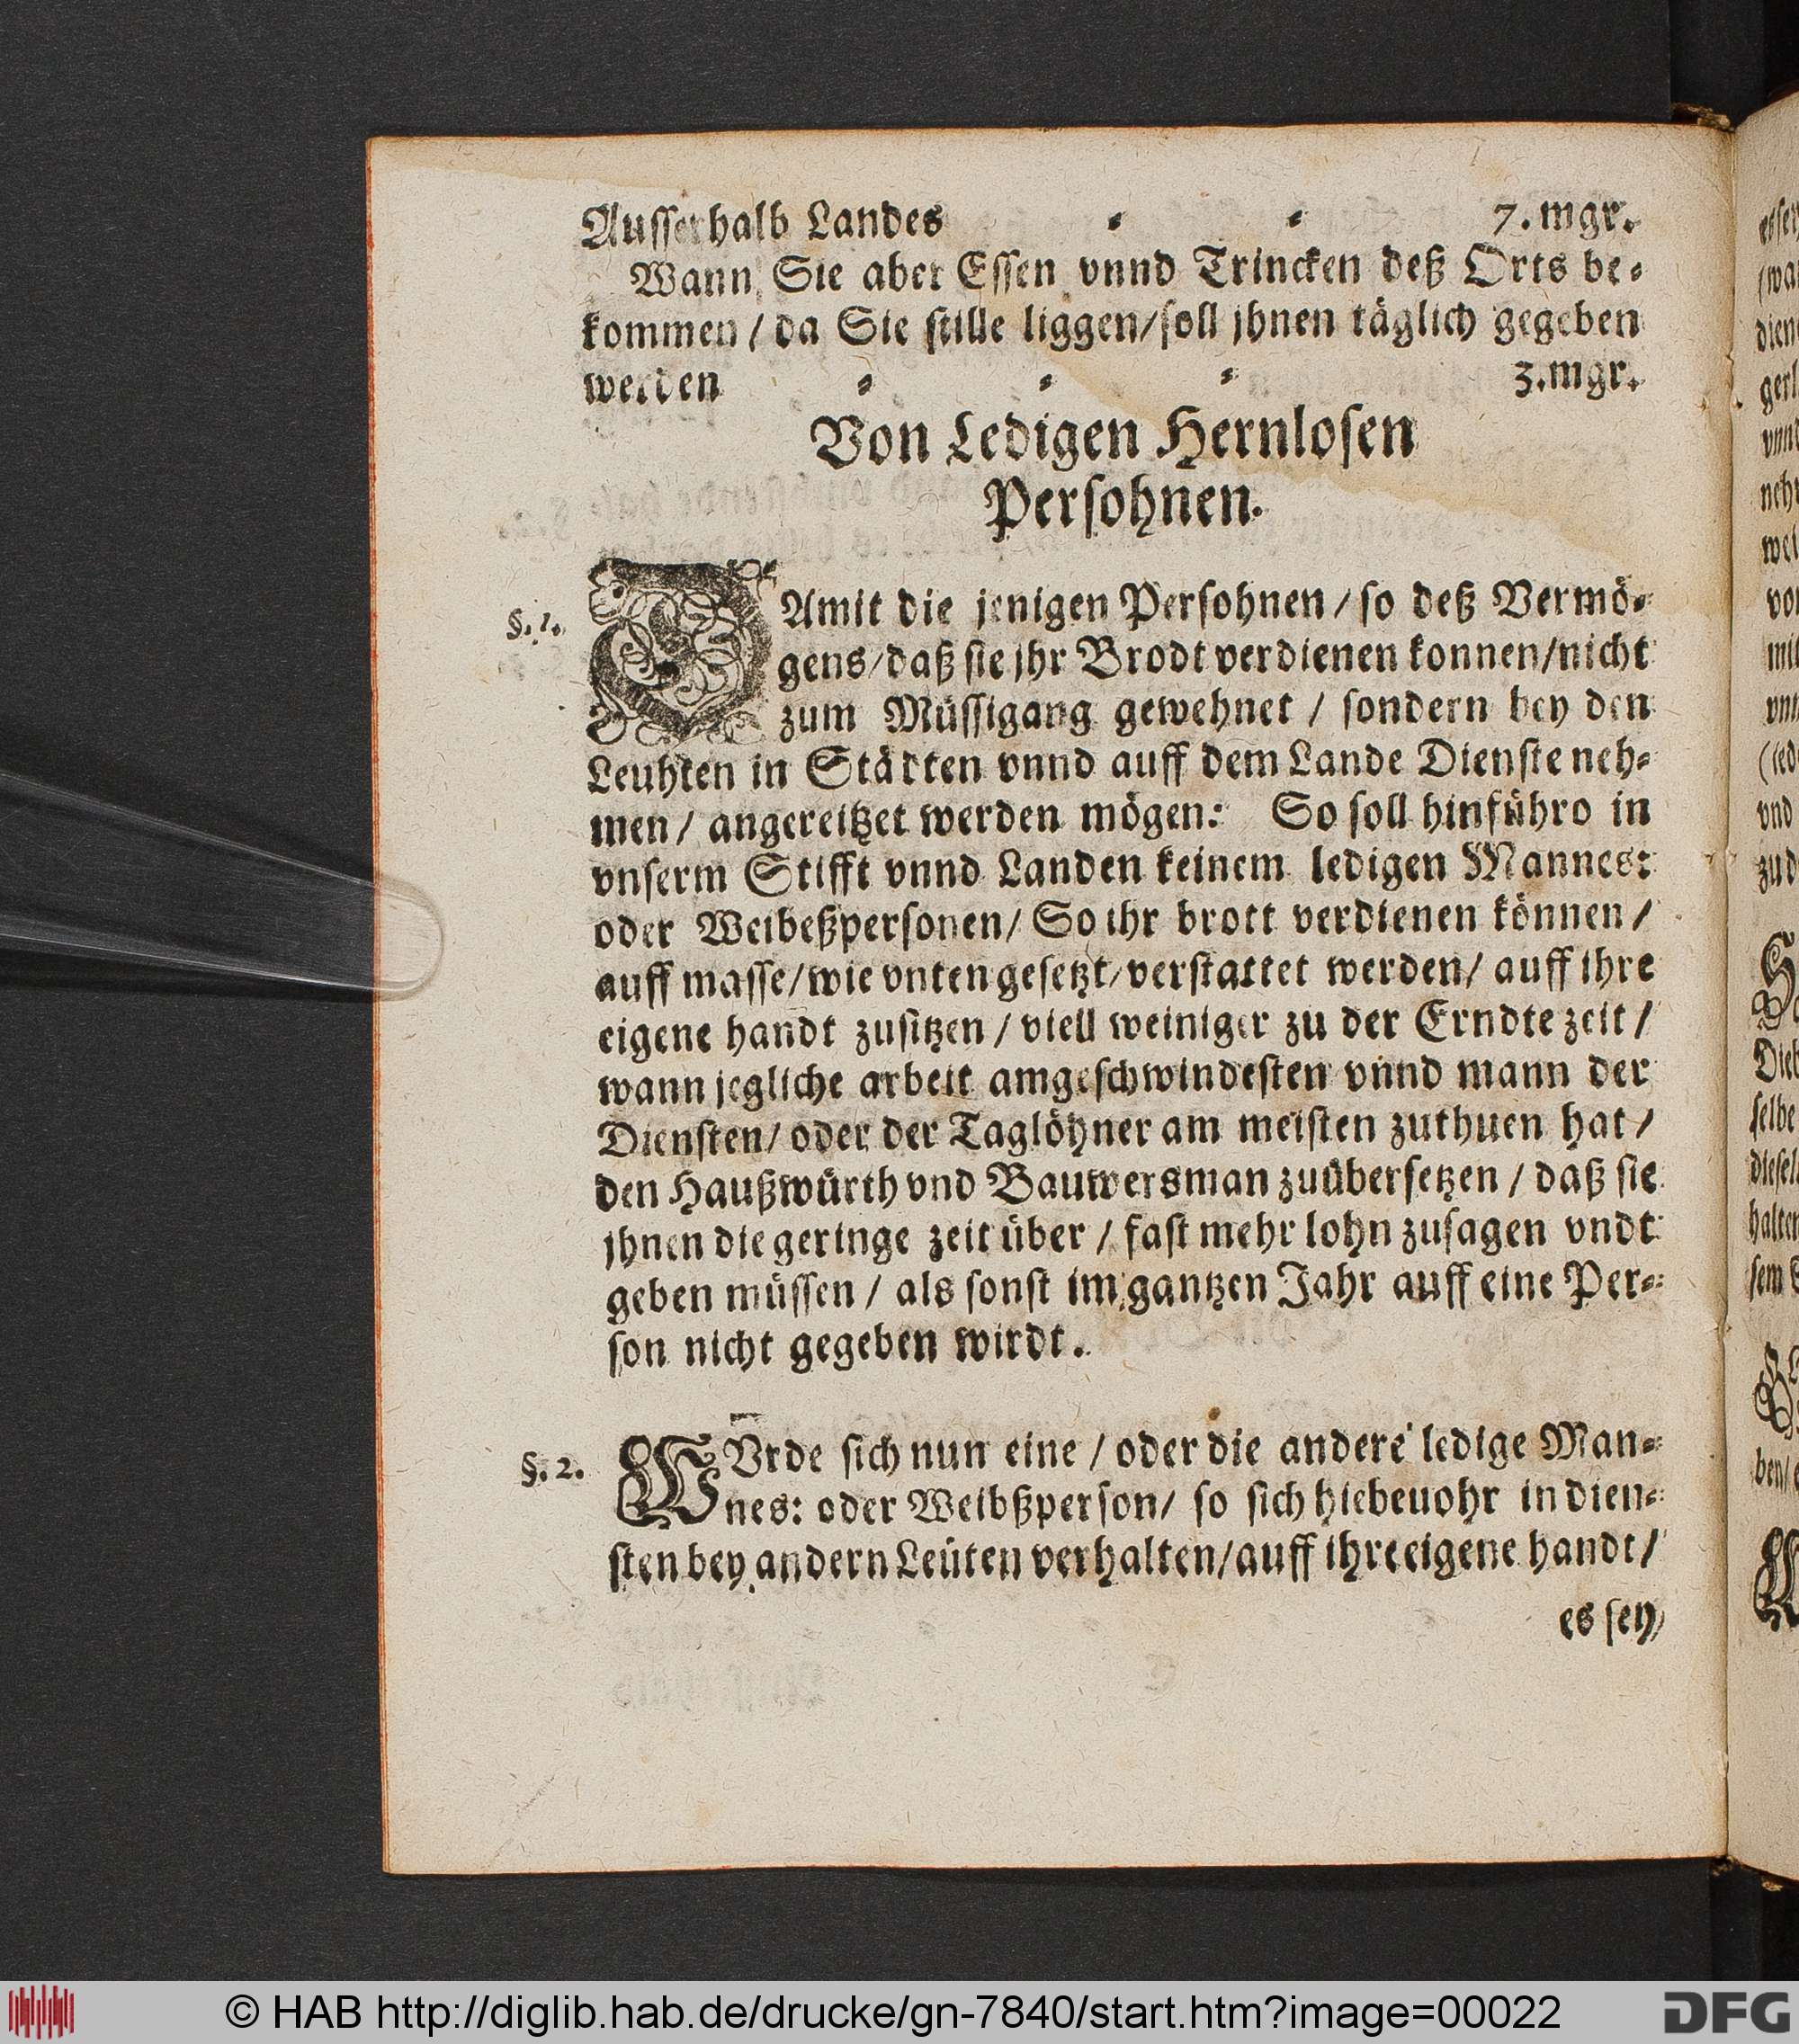 Ausserhalb Landes ⸗ ⸗ 7. mgr.
Wann Sie aber Essen vnnd Trincken deß Orts be⸗
kommen / da Sie stille liggen / soll jhnen täglich gegeben
werden ⸗ ⸗ ⸗ 3. mgr.
Von Ledigen Hernlosen
Persohnen.
§. 1. DAmit die jenigen Persohnen / so deß Vermö⸗
gens / daß sie jhr Brodt verdienen konnen / nicht
zum Müssigang gewehnet / sondern bey den
Leuhten in Städten vnnd auff dem Lande Dienste neh⸗
men / angereitzet werden mögen: So soll hinführo in
vnserm Stifft vnnd Landen keinem ledigen Mannes:
oder Weibeßpersonen / So ihr brott verdienen können /
auff masse / wie vnten gesetzt / verstattet werden / auff ihre
eigene handt zusitzen / viell weiniger zu der Erndte zeit /
wann jegliche arbeit amgeschwindesten vnnd mann der
Diensten / oder der Taglöhner am meisten zuthuen hat /
den Haußwürth vnd Bauwersman zuübersetzen / daß sie
jhnen die geringe zeit über / fast mehr lohn zusagen vndt
geben müssen / als sonst im gantzen Jahr auff eine Per⸗
son nicht gegeben wirdt.
§. 2. WVrde sich nun eine / oder die andere ledige Man⸗
nes: oder Weibßperson / so sich hiebeuohr in dien⸗
sten bey andern Leüten verhalten / auff ihre eigene handt /
es sey /
© HAB http://diglib.hab.de/drucke/gn-7840/start.htm?image=00022
DFG